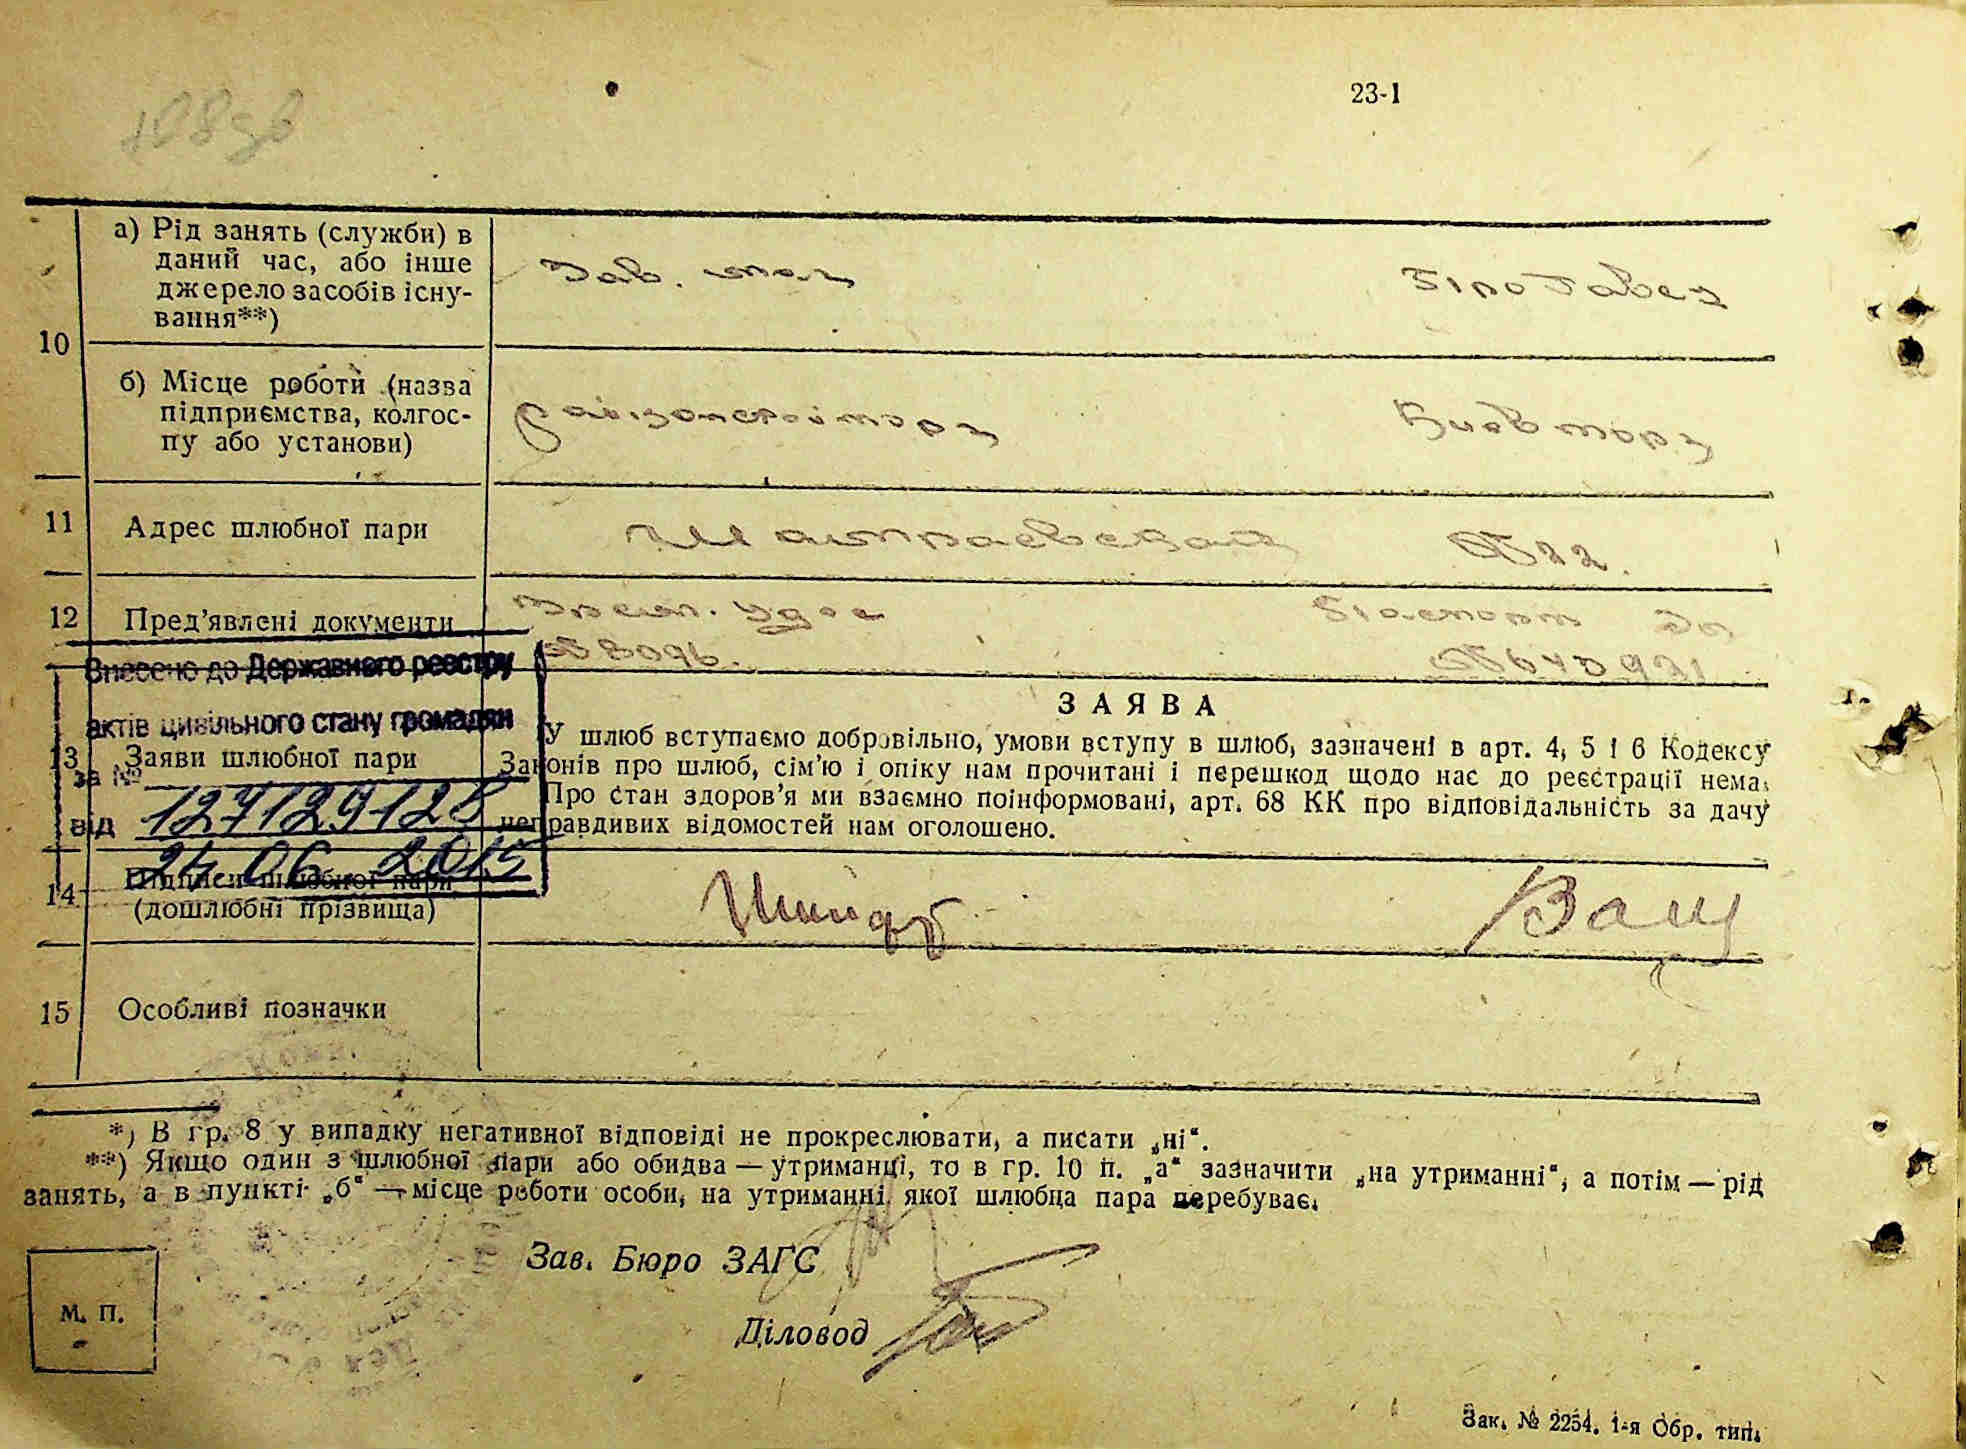 23-1
10
а) Рід занять (служби) в
даний час, або інше
джерело засобів існу-
вання**)
Зав. маг
Продавец
б) Місце роботи (назва
підприємства, колгос-
пу або установи)
Киевторг
11
Адрес шлюбної пари
22.
12
Пред’явлені документи
удос
Паспорт
8096.
Внесено до Державного реєстру
актів цивільного стану громадян
за №
127129128
від
24 06 2015
13
Заяви шлюбної пари
ЗАЯВА
У шлюб вступаємо добровільно, умови вступу в шлюб, зазначені в арт. 4, 5 і 6 Кодексу
Законів про шлюб, сім’ю і опіку нам прочитані і перешкод щодо нас до реєстрації нема.
Про стан здоров’я ми взаємно поінформовані, арт. 68 КК про відповідальність за дачу
неправдивих відомостей нам оголошено.
14
Підписи шлюбної пари
(дошлюбні прізвища)
15
Особливі позначки
*) В гр. 8 у випадку негативної відповіді не прокреслювати, а писати „ні“.
**) Якщо один з шлюбної пари або обидва — утриманці, то в гр. 10 п. „а“ зазначити „на утриманні“, а потім — рід
занять, а в пункті „б“ — місце роботи особи, на утриманні якої шлюбна пара перебуває.
Зав. Бюро ЗАГС
М. П.
Діловод
Зак. № 2254. 1-я Обр. тип.